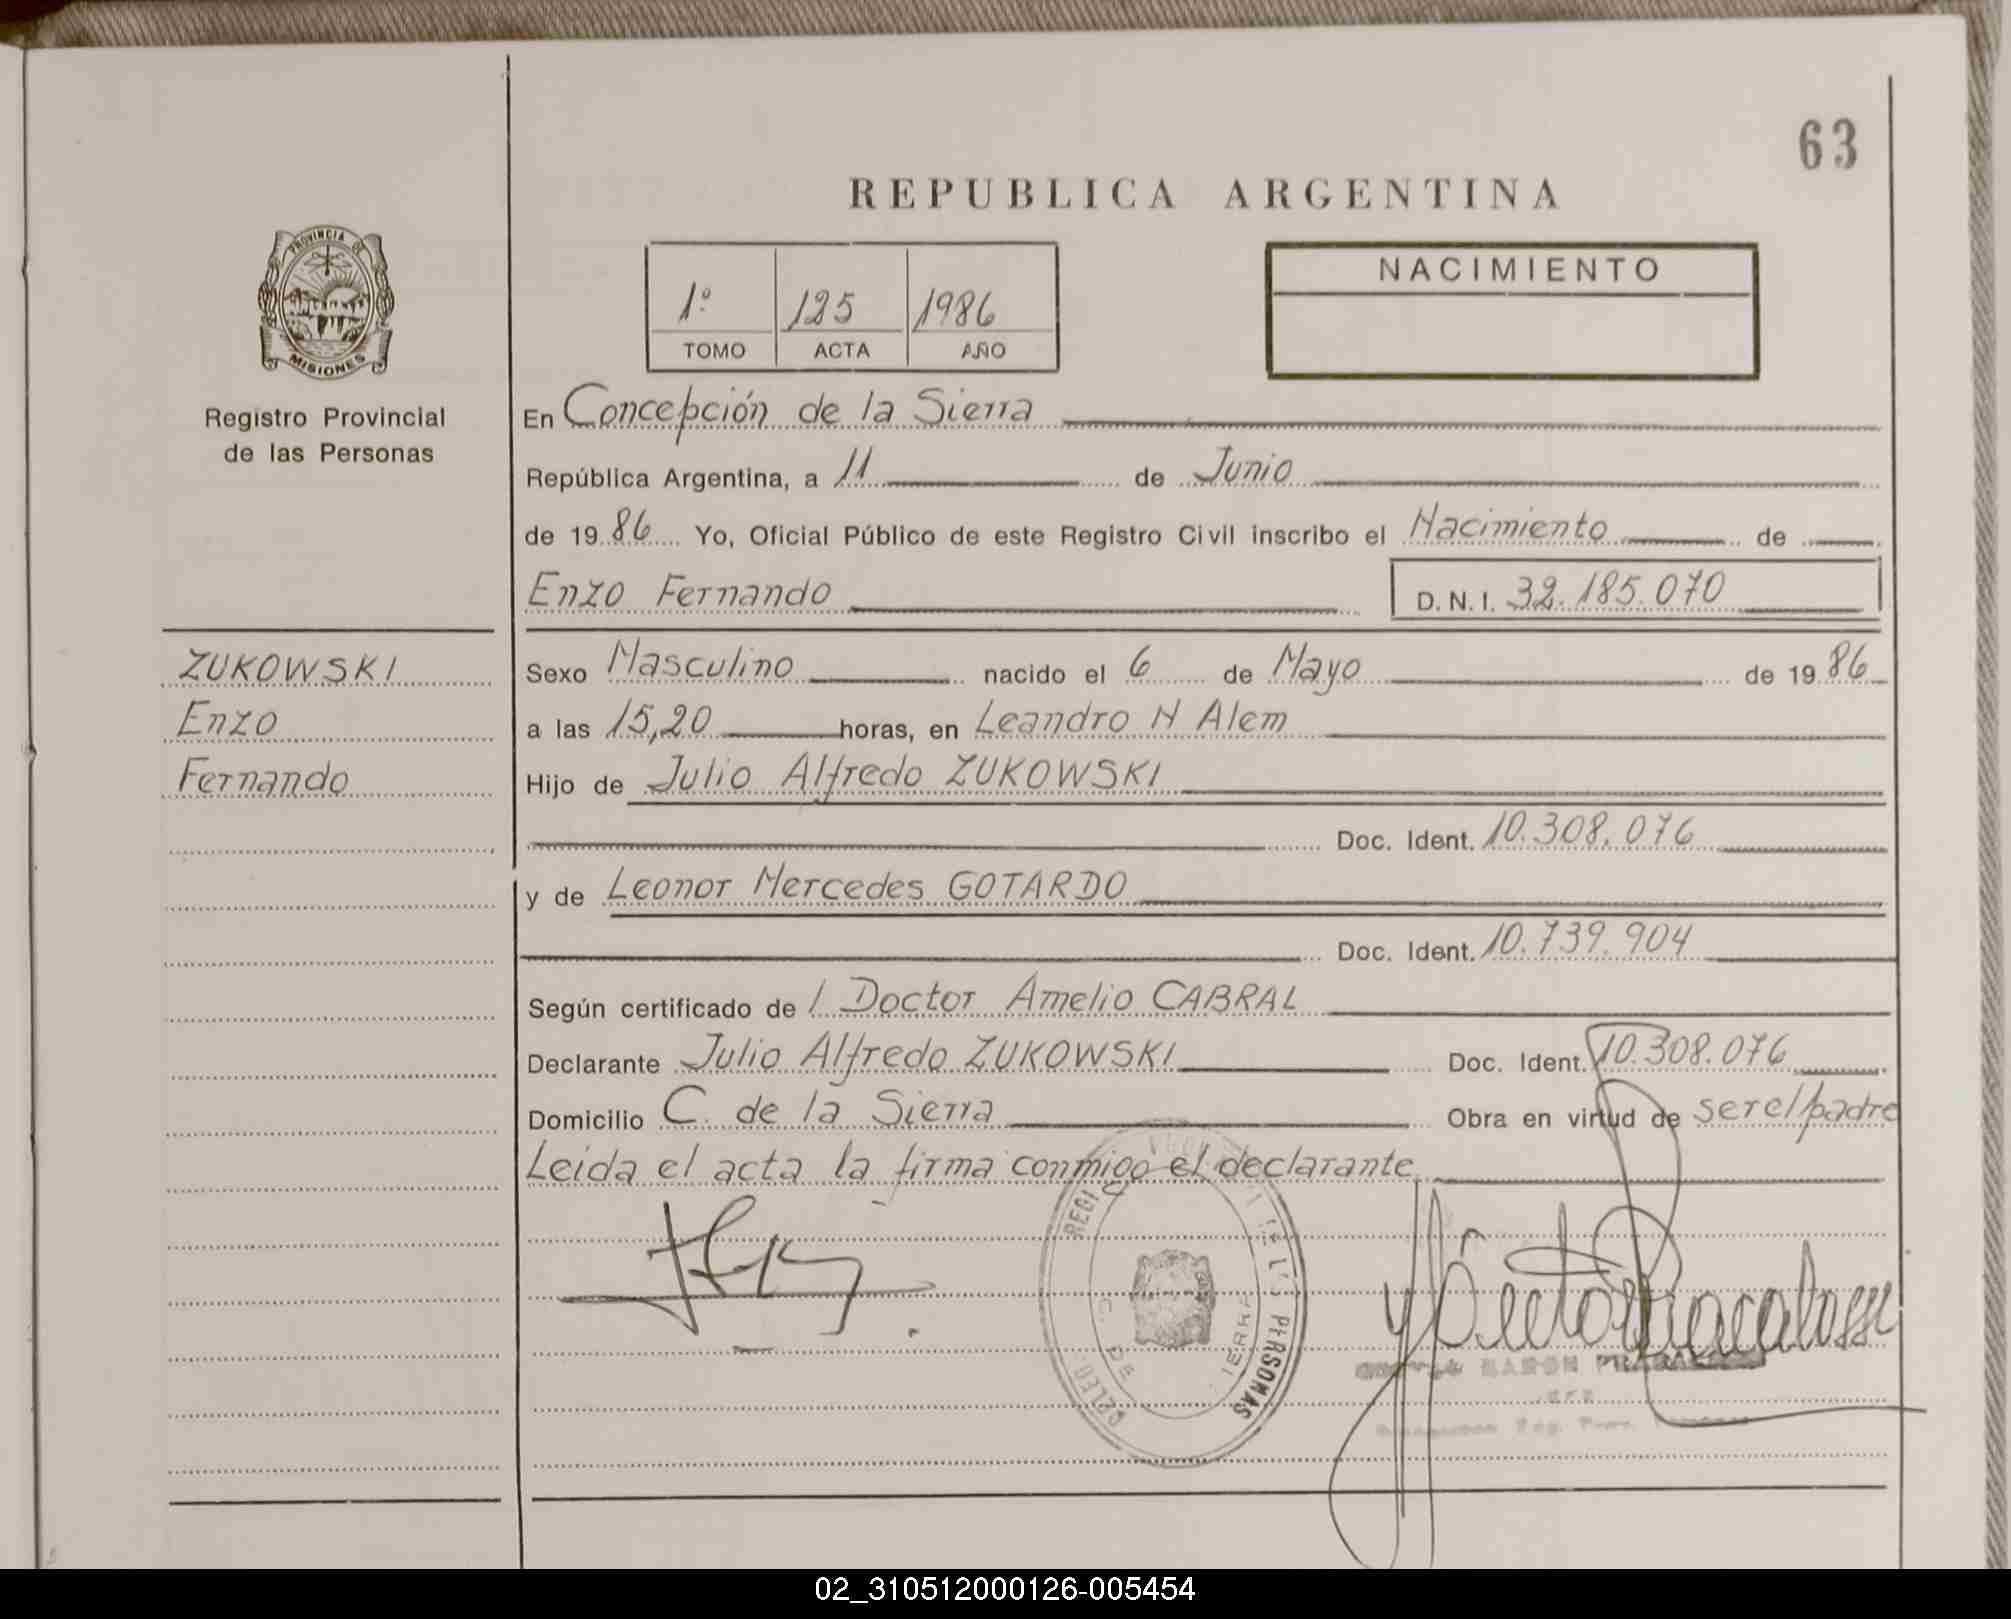 63
REPUBLICA ARGENTINA
PROVINCIA DE
MISIONES
Registro Provincial
de las Personas
1º 125 1986
TOMO ACTA AÑO
NACIMIENTO
En Concepción de la Sierra
República Argentina, a 11 de Junio
de 1986 Yo, Oficial Público de este Registro Civil inscribo el Nacimiento de
Enzo Fernando D.N.I. 32.185.070
ZUKOWSKI
Enzo
Fernando
Sexo Masculino nacido el 6 de Mayo de 1986
a las 15,20 horas, en Leandro N Alem
Hijo de Julio Alfredo ZUKOWSKI
Doc. Ident. 10.308.076
y de Leonor Mercedes GOTARDO
Doc. Ident. 10.739.904
Según certificado de / Doctor Amelio CABRAL
Declarante Julio Alfredo ZUKOWSKI Doc. Ident. 10.308.076
Domicilio C. de la Sierra Obra en virtud de ser el padre
Leida el acta la firma conmigo el declarante
PERSONAS
02_310512000126-005454